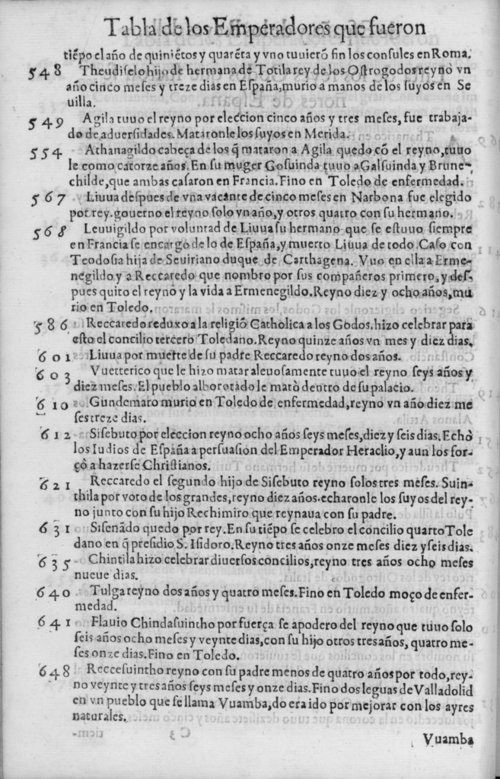 Tabla de los Emperadores que fueron
tiẽpo el año de quiniẽtos y quarẽta y vno tuuierõ fin los consules en Roma.
548 Theudiselo hijo de hermana de Totila rey de los Ostrogodos reyno vn
año cinco meses y treze dias en España, murio a manos de los suyos en Se
uilla.
549 Agila tuuo el reyno por eleccion cinco años y tres meses, fue trabaja-
do de aduersidades. Mataronle los suyos en Merida.
554 Athanagildo cabeça de los q̃ mataron a Agila quedo cõ el reyno, tuuo
le como catorze años. En su muger Gosuinda tuuo a Galsuinda y Brune-
childe, que ambas casaron en Francia. Fino en Toledo de enfermedad.
567 Liuua despues de vna vacante de cinco meses en Narbona fue elegido
por rey. gouerno el reyno solo vn año, y otros quatro con su hermano.
568 Leuuigildo por voluntad de Liuua su hermano que se estuuo siempre
en Francia se encargo de lo de España, y muerto Liuua de todo. Caso con
Teodosia hija de Seuiriano duque de Carthagena. Vuo en ella a Erme-
negildo y a Reccaredo que nombro por sus compañeros primero, y des-
pues quito el reyno y la vida a Ermenegildo. Reyno diez y ocho años, mu
rio en Toledo.
586 Reccaredo reduxo a la religiõ Catholica a los Godos. hizo celebrar para
esto el concilio tercero Toledano. Reyno quinze años vn mes y diez dias.
601 Liuua por muerte de su padre Reccaredo reyno dos años.
603 Vuetterico que le hizo matar aleuosamente tuuo el reyno seys años y
diez meses. El pueblo alborotado le matò dentro de su palacio.
610 Gundemaro murio en Toledo de enfermedad, reyno vn año diez me
ses treze dias.
612 Sisebuto por eleccion reyno ocho años seys meses, diez y seis dias. Echò
los Iudios de España a persuasion del Emperador Heraclio, y aun los for-
çò a hazerse Christianos.
621 Reccaredo el segundo hijo de Sisebuto reyno solos tres meses. Suin-
thila por voto de los grandes, reyno diez años. echaronle los suyos del rey-
no junto con su hijo Rechimiro que reynaua con su padre.
631 Sisenãdo quedo por rey. En su tiẽpo se celebro el concilio quarto Tole
dano en q̃ presidio S. Isidoro. Reyno tres años onze meses diez y seis dias.
635 Chintila hizo celebrar diuersos concilios, reyno tres años ocho meses
nueue dias.
640 Tulga reyno dos años y quatro meses. Fino en Toledo moço de enfer-
medad.
641 Flauio Chindasuintho por fuerça se apodero del reyno que tuuo solo
seis años ocho meses y veynte dias, con su hijo otros tres años, quatro me-
ses onze dias. Fino en Toledo.
648 Reccesuintho reyno con su padre menos de quatro años por todo, rey-
no veynte y tres años seys meses y onze dias. Fino dos leguas de Valladolid
en vn pueblo que se llama Vuamba, do era ido por mejorar con los ayres
naturales.
Vuamba